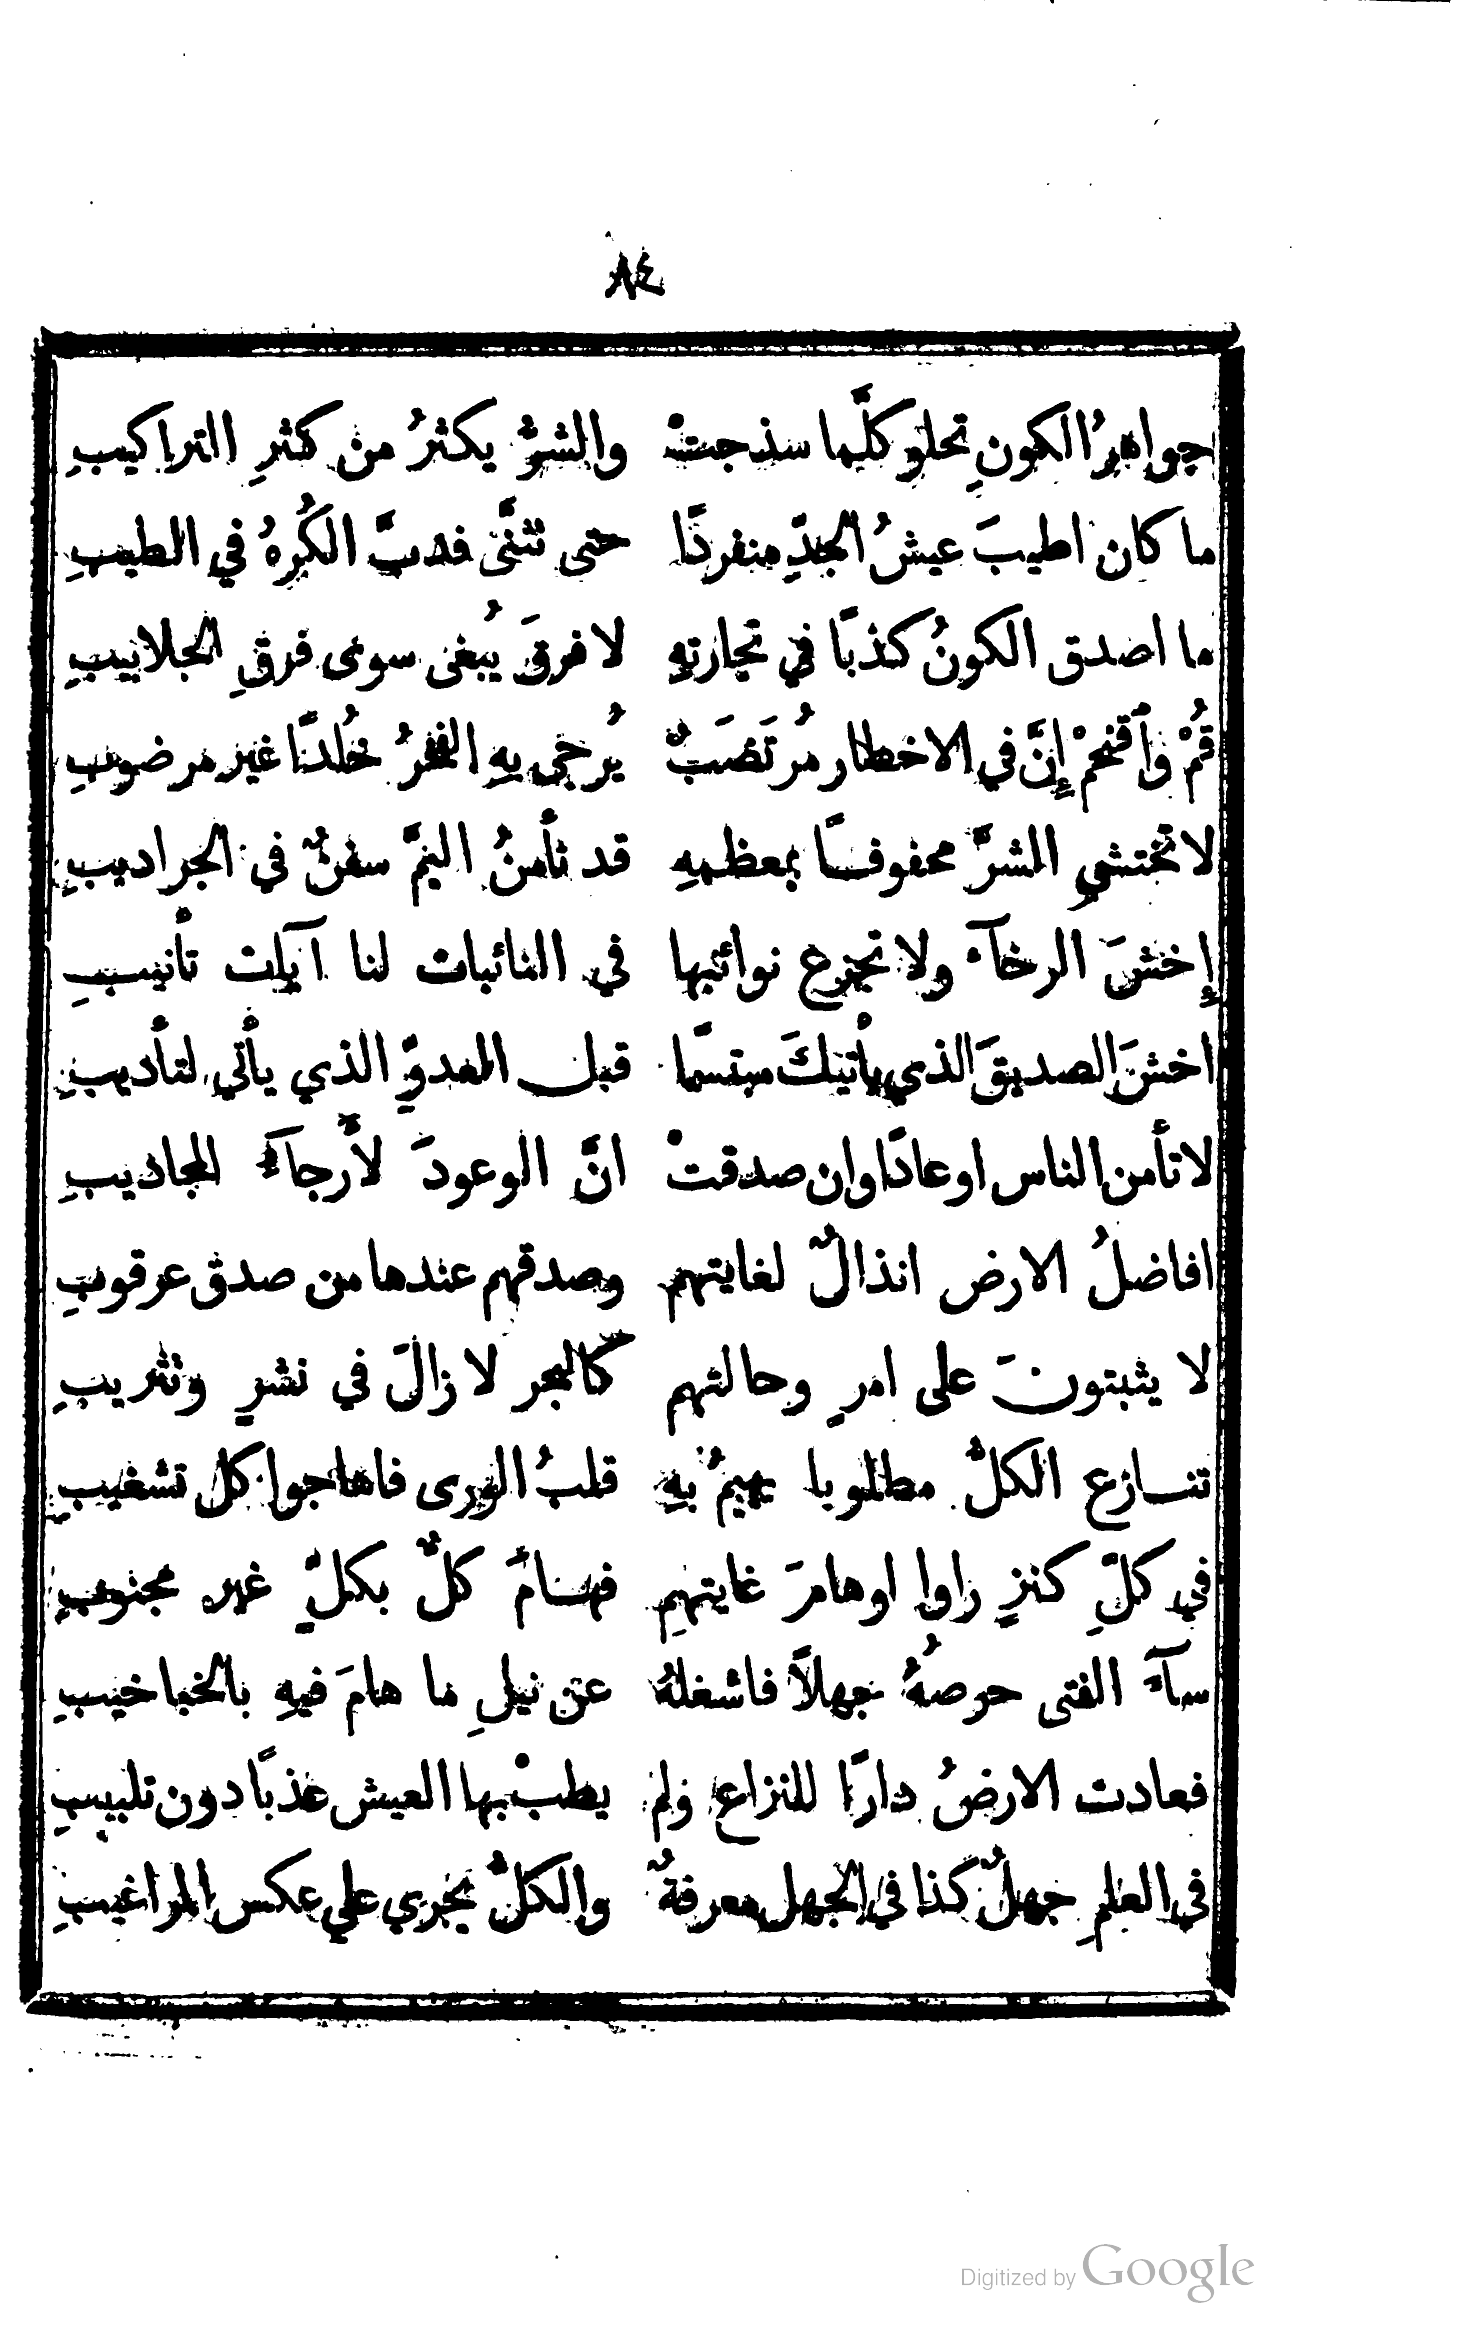 ٨٤
جواهرُ الكونِ تحلو كلَّما سذجتْ والشرُّ يكثرُ من كثرِ التراكيبِ
ما كان اطيبَ عيشُ الجدِّ منفردًا حتى تثنَّى فدبَّ الكُرهُ في الطيبِ
ما اصدق الكونُ كذبًا في تجارتهِ لا فرقَ يُبغى سوى فرقِ الجلابيبِ
قُمْ وأقتحمْ إِنَّ في الاخطار مُرتَضَبٌ يُرجى بهِ الفخرُ خُلدنًا غير مرضوبِ
لا تختشي الشرَّ محفوفًا بمعظمهِ قد تأمنُ اليمَّ سفنٌ في الجراديبِ
إِخشَ الرخآءَ ولا تجزع نوائبها في النائبات لنا آيات تأنيبِ
اخشَ الصديقَ الذي يأتيكَ مبتسمًا قبل العدوِّ الذي يأتي لتأديبِ
لا تأمن الناس اوعادًا وان صدقتْ انَّ الوعودَ لأَرجآءَ المجاذيبِ
افاضلُ الارض انذالٌ لغايتهم وصدقهم عندها من صدق عرقوبِ
لا يثبتونَ على امرٍ وحالتهم كالبحر لا زالَ في نشرٍ وتثريبِ
تنازع الكلُّ مطلوبا يهيمُ بهِ قلبُ الورى فاهاجوا كل تشغيبِ
في كلِّ كنزٍ راوا اوهامَ غايتهمِ فهامَ كلٌّ بكلٍّ غير مجنوبِ
سآءَ الفتى حرصهُ جهلاً فاشغلهُ عن نيلِ ما هامَ فيهِ بالخباخيبِ
فعادت الارضُ دارًا للنزاع ولم يطبْ بها العيش عذبًا دون تلبيبِ
في العلمِ جهلٌ كذا في الجهل معرفةٌ والكلُّ يجري علي عكس المراغيبِ
Digitized by Google